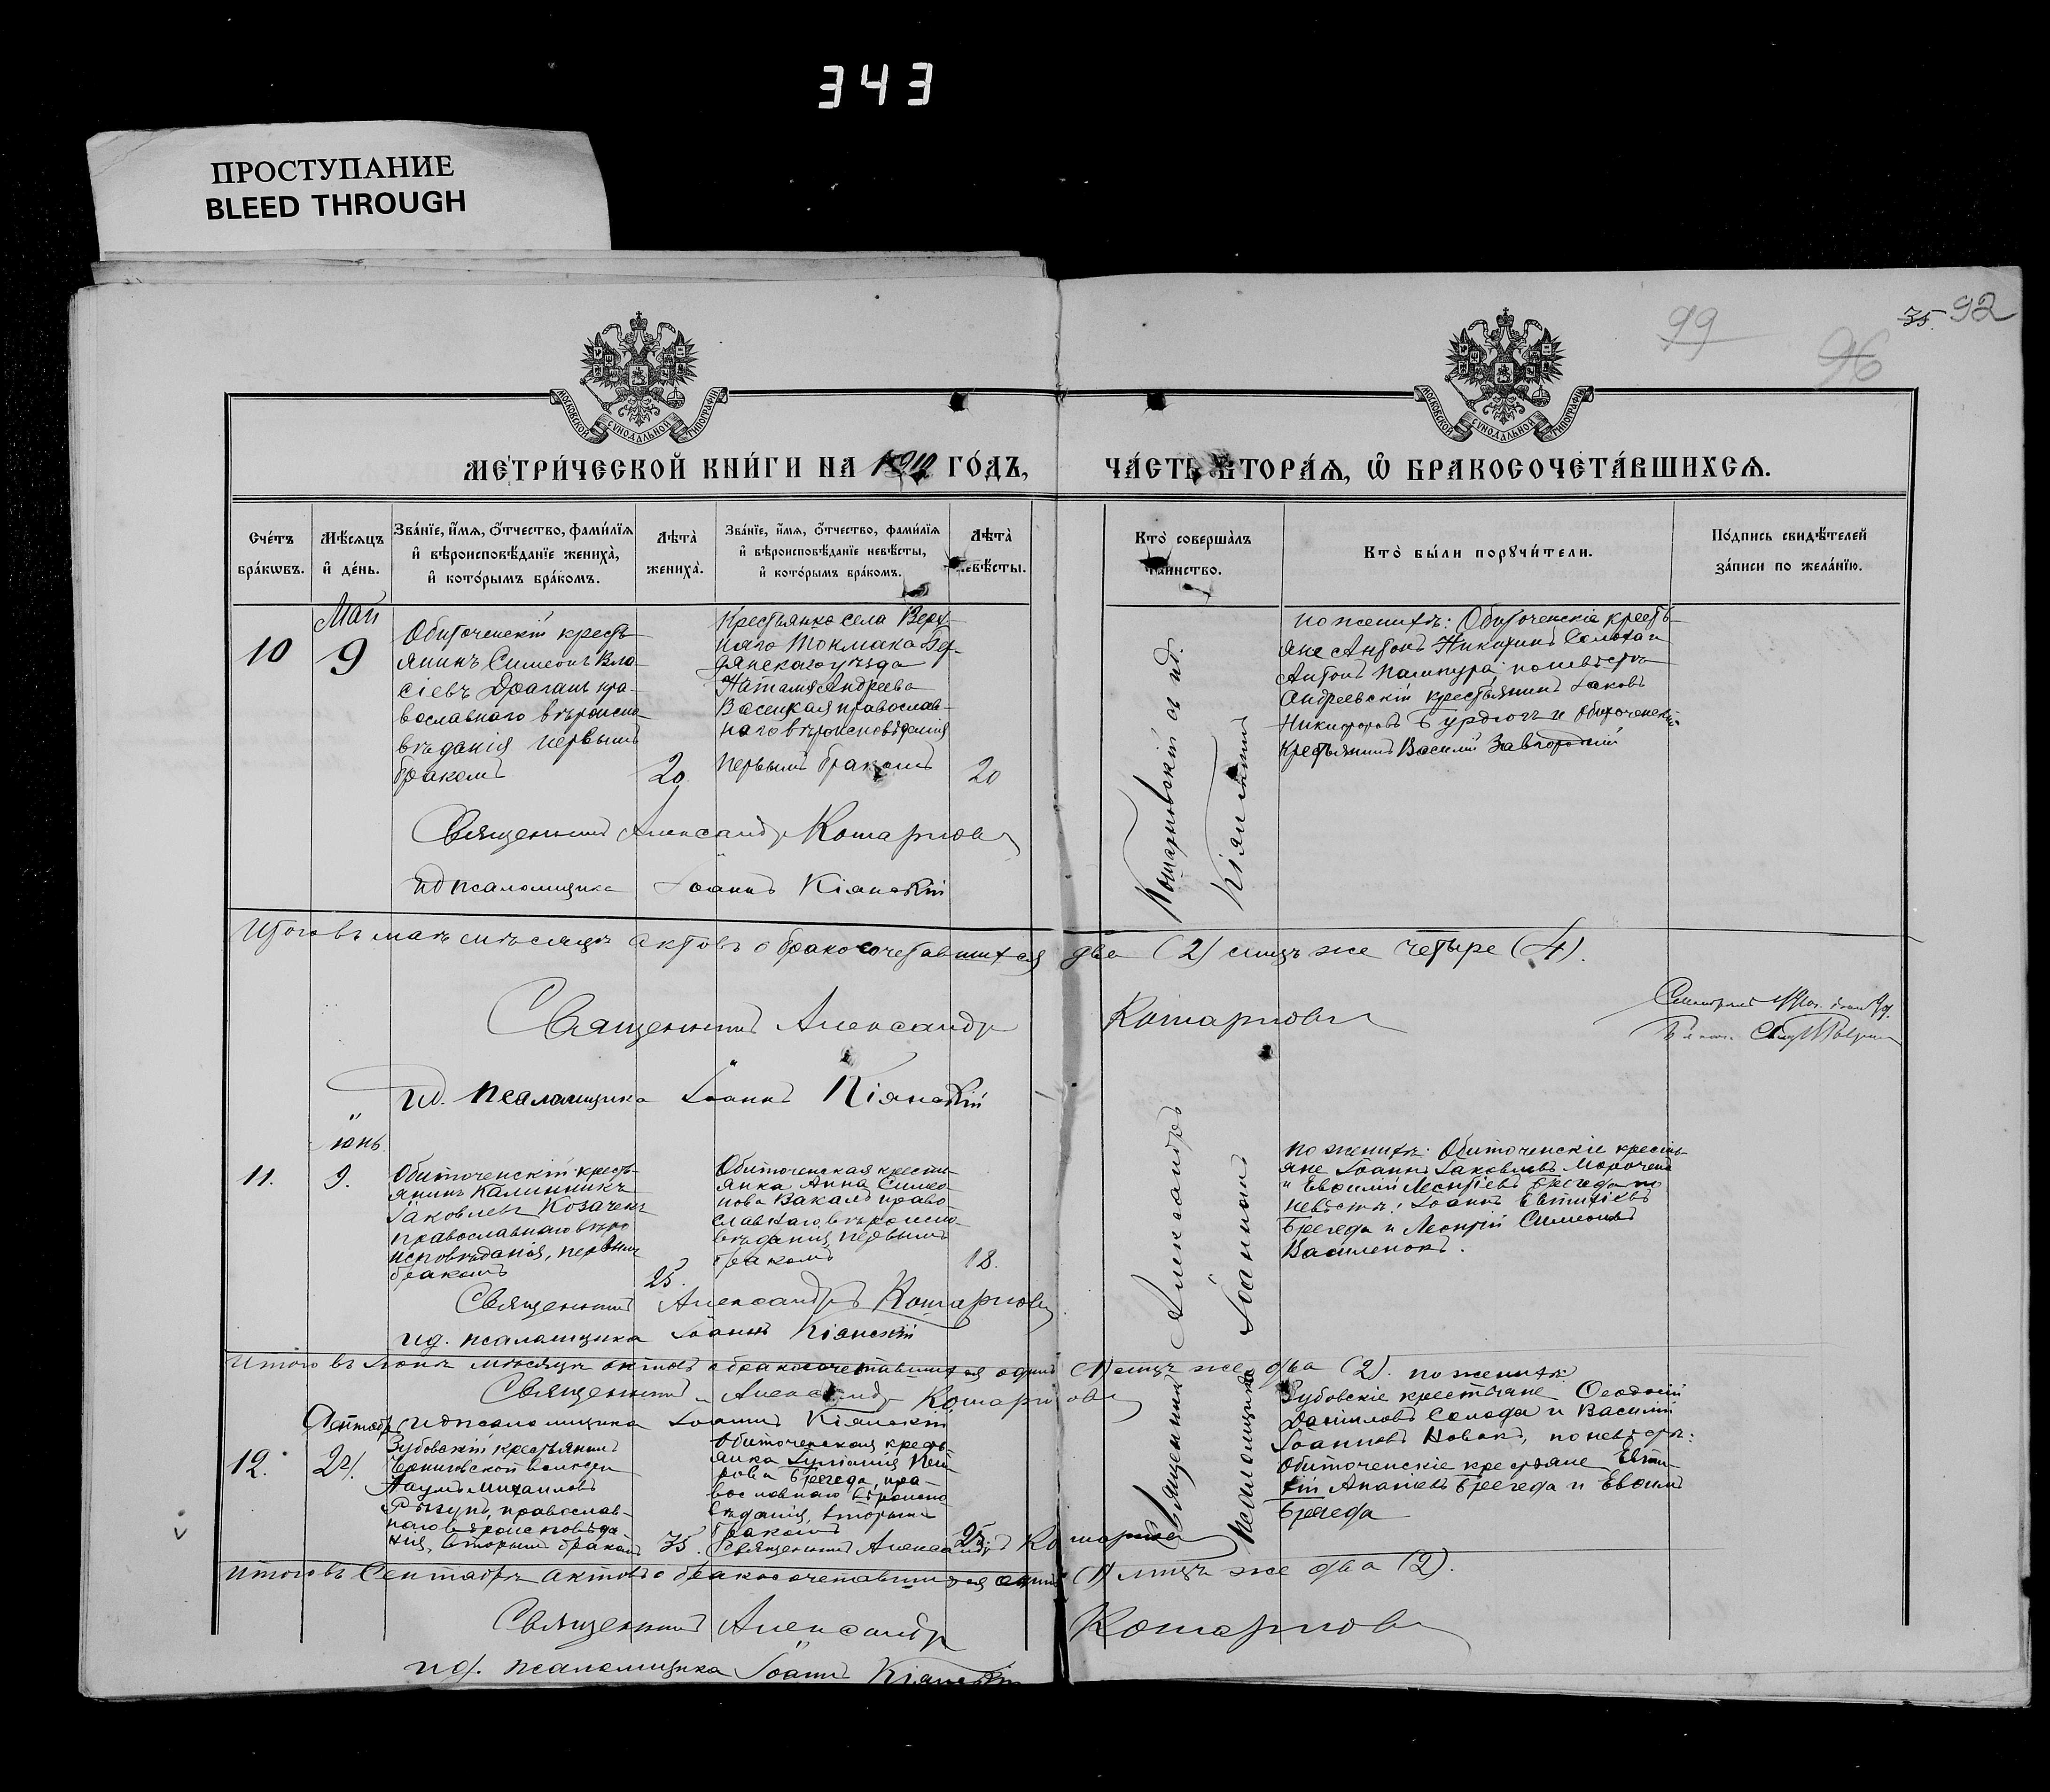 343
ПРОСТУПАНИЕ
BLEED THROUGH
99
96
35. 92
МОСКОВСКОЙ СѴНОДАЛЬНОЙ ТИПОГРАФІИ
МОСКОВСКОЙ СѴНОДАЛЬНОЙ ТИПОГРАФІИ
МЕТРИ́ЧЕСКОЙ КНИ́ГИ НА 1912 ГО́ДЪ,
ЧА́СТЬ ВТОРА́Я, Ѡ БРАКОСОЧЕТА́ВШИХСѦ.
Сче́тъ
бра́кѡвъ.
Мѣ́сяцъ
и҆ де́нь.
Зва́нїе, и҆́мя, ѻ҆́тчество, фами́лїя
и҆ вѣроисповѣ́данїе жениха̀,
и҆ кото́рымъ бра́комъ.
Лѣта̀
жениха̀.
Зва́нїе, и҆́мя, ѻ҆́тчество, фами́лїя
и҆ вѣроисповѣ́данїе невѣ́сты,
и҆ кото́рымъ бра́комъ.
Лѣта̀
невѣ́сты.
Кто̀ соверша́лъ
таинство.
Кто̀ бы́ли порꙋчи́тели.
По́дпись свидѣ́телей
за́писи по жела́нїю.
10
Май
9
Обиточенскій кресть-
янинъ Симеонъ Вла-
сіевъ Драганъ пра-
вославнаго вѣроиспо-
вѣданія первымъ
бракомъ
20
Крестьянка села Верх-
няго Токмака Бер-
дянскаго уѣзда
Наталія Андреева
Васецкая православ-
наго вѣроисповѣданія
первымъ бракомъ
20
Кошарновскій съ ид.
Кіянскимъ
по женихѣ: Обиточенскіе кресть-
яне Антонъ Никитинъ Солоха и
Антонъ Палипура, по невѣстѣ
Андреевскій крестьянинъ Іаковъ
Никифоровъ Бурдюгъ и Обиточенскій
крестьянинъ Василій Завгородній
Священникъ Александръ
ид псаломщика Іоаннъ Кіянскій
Итого въ маѣ мѣсяцѣ актовъ о бракосочетавшихся два (2) лицъ же четыре (4).
Священникъ Александръ
ид. псаломщика Іоаннъ Кіянскій
11.
Іюнь
9.
Обиточенскій кресть-
янинъ Калинникъ
Іаковлевъ Козаченко
православнаго вѣро
исповѣданія, первымъ
бракомъ
25.
Обиточенская кресть-
янка Анна Симео-
нова Вакалъ право
славнаго вѣроиспо-
вѣданія первымъ
бракомъ
18.
Священникъ Александръ
псаломщика Іоанномъ
по женихѣ: Обиточенскіе кресть-
яне Іоаннъ Іаковлевъ
и Евфимій Леонтіевъ Брегеда по
невѣстѣ: Іоаннъ Евтихіевъ
Брегеда и Леонтій Симеоновъ
Василенокъ.
Священникъ Александръ
ид. псаломщика Іоаннъ Кіянскій
Итого въ Іюнѣ мѣсяцѣ актовъ о бракосочетавшихся одинъ (1) лицъ же два (2).
Священникъ Александръ
ид псаломщика Іоаннъ Кіянскій
12.
Сентябрь
24.
Зубовскій крестьянинъ
Черниговской волости
Наумъ Михаиловъ
православ-
наго вѣроисповѣда-
нія, вторымъ бракомъ
35.
Обиточенская кресть-
янка
Брегеда, пра-
вославнаго вѣроиспо
вѣданія, вторымъ
бракомъ
25.
по женихѣ
Зубовскіе крестьяне Ѳеодосій
Даніиловъ Солода и Василій
Іоанновъ Новакъ, по невѣстѣ:
Обиточенскіе крестьяне Евти-
хій Ананіевъ Брегеда и Евфимъ
Брегеда
Священникъ Александръ
Итого въ Сентябрѣ актовъ о бракосочетавшихся одинъ (1) лицъ же два (2).
Священникъ Александръ
ид. псаломщика Іоаннъ Кіянскій